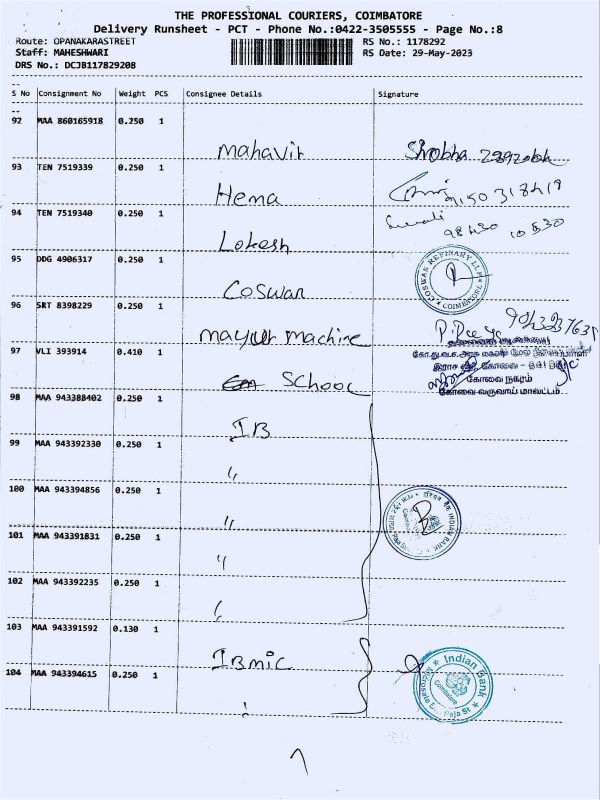 THE PROFESSIONAL COURIERS, COIMBATORE
Delivery Runsheet - PCT - Phone No.:0422-3505555 - Page No.:8
Route: OPANAKARASTREET RS No.: 1178292
Staff: MAHESHWARI RS Date: 29-May-2023
DRS No.: DCJB117829208
S No Consignment No Weight PCS Consignee Details Signature
92 MAA 860165918 0.250 1
Mahavir Shobha
93 TEN 7519339 0.250 1
Hema
94 TEN 7519340 0.250 1
Lokesh
95 DDG 4906317 0.250 1
COSWAN REFINARY LLP COIMBATORE
Coswan
96 SRT 8398229 0.250 1
mayur machine
97 VLI 393914 0.410 1
கோவை நகரம்
School
கோவை வருவாய் மாவட்டம்
98 MAA 943388402 0.250 1
IB
99 MAA 943392330 0.250 1
"
100 MAA 943394856 0.250 1
INDIAN BANK
"
101 MAA 943391831 0.250 1
"
102 MAA 943392235 0.250 1
103 MAA 943391592 0.130 1
IBmic
Indian Bank
104 MAA 943394615 0.250 1
Coimbatore